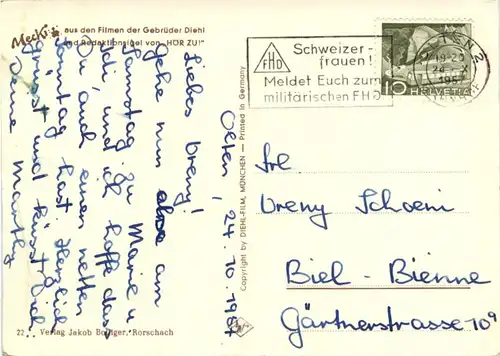 Mecki aus den Filmen der Gebrüder Diehl
und Redaktionsigel von „HÖR ZU!"
Olten, 24. 10. 1951
Liebes Vreny!
Gehe nun also am
Samstag zu Marie u
Edi, und ich hoffe dass
Du auch einen netten
Sonntag hast. Herzlich
grüsst und küsst Dich
Deine Marthy
22 Verlag Jakob Bolliger, Rorschach
Copyright by DIEHL-FILM, MÜNCHEN — Printed in Germany
FHD
Schweizer-
frauen!
Meldet Euch zum
militärischen FHD
OLTEN 2
24. X
195
10 HELVETIA
Frl
Vreny Schoeni
Biel-Bienne
Gärtnerstrasse 10a